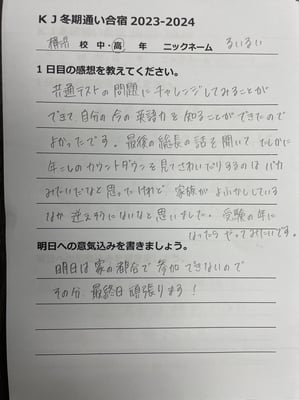 KJ冬期通い合宿 2023-2024
校 中・高 年 ニックネーム るいるい
1日目の感想を教えてください。
共通テストの問題にチャレンジしてみることが
できて、自分の今の英語力を知ることができたので
よかったです。最後の総長の話を聞いて、たしかに
年こしのカウントダウンを見てさわいだりするのはバカ
みたいだなと思ったけれど、家族がよふかししている
なか逆えそうにないなと思いました。受験の年に
なったらやってみたいです。
明日への意気込みを書きましょう。
明日は家の都合で参加できないので
その分、最終日頑張ります!